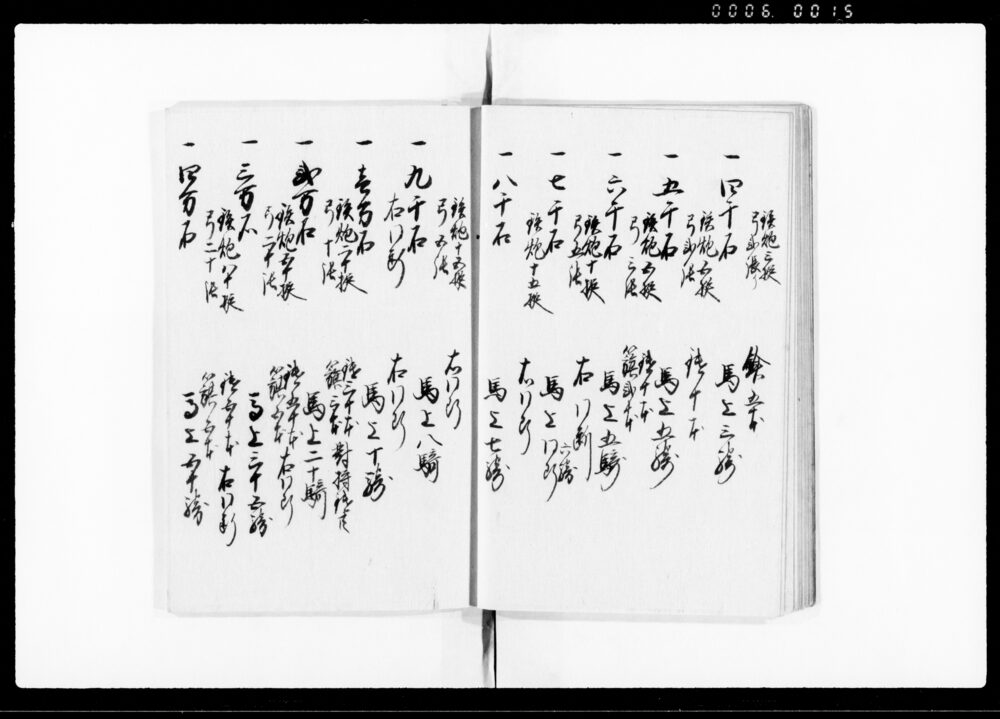 鉄炮三挺
弓弐張
鎗五本
一 四千石
馬上三騎
鉄炮五挺
弓弐張
鑓十本
一 五千石
馬上五騎
鉄炮五挺
弓三張
鑓十本
籏弐本
一 六千石
馬上五騎
鉄炮十挺
弓五張
右同断
六騎
一 七千石
馬上同断
鉄炮十五挺
右同断
一 八千石
馬上七騎
鉄炮十五挺
弓五張
右同断
一 九千石
馬上八騎
右同断
右同断
一 壱万石
馬上十騎
鉄炮二十挺
弓十張
鑓三十本 対持鑓共
籏三本
一 弐万石
馬上二十騎
鉄炮五十挺
弓二十張
鑓五十本 右同断
籏五本
一 三万石
馬上三十五騎
鉄炮八十挺
弓二十張
鑓七十本 右同断
籏五本
一 四万石
馬上五十騎
0006 0015